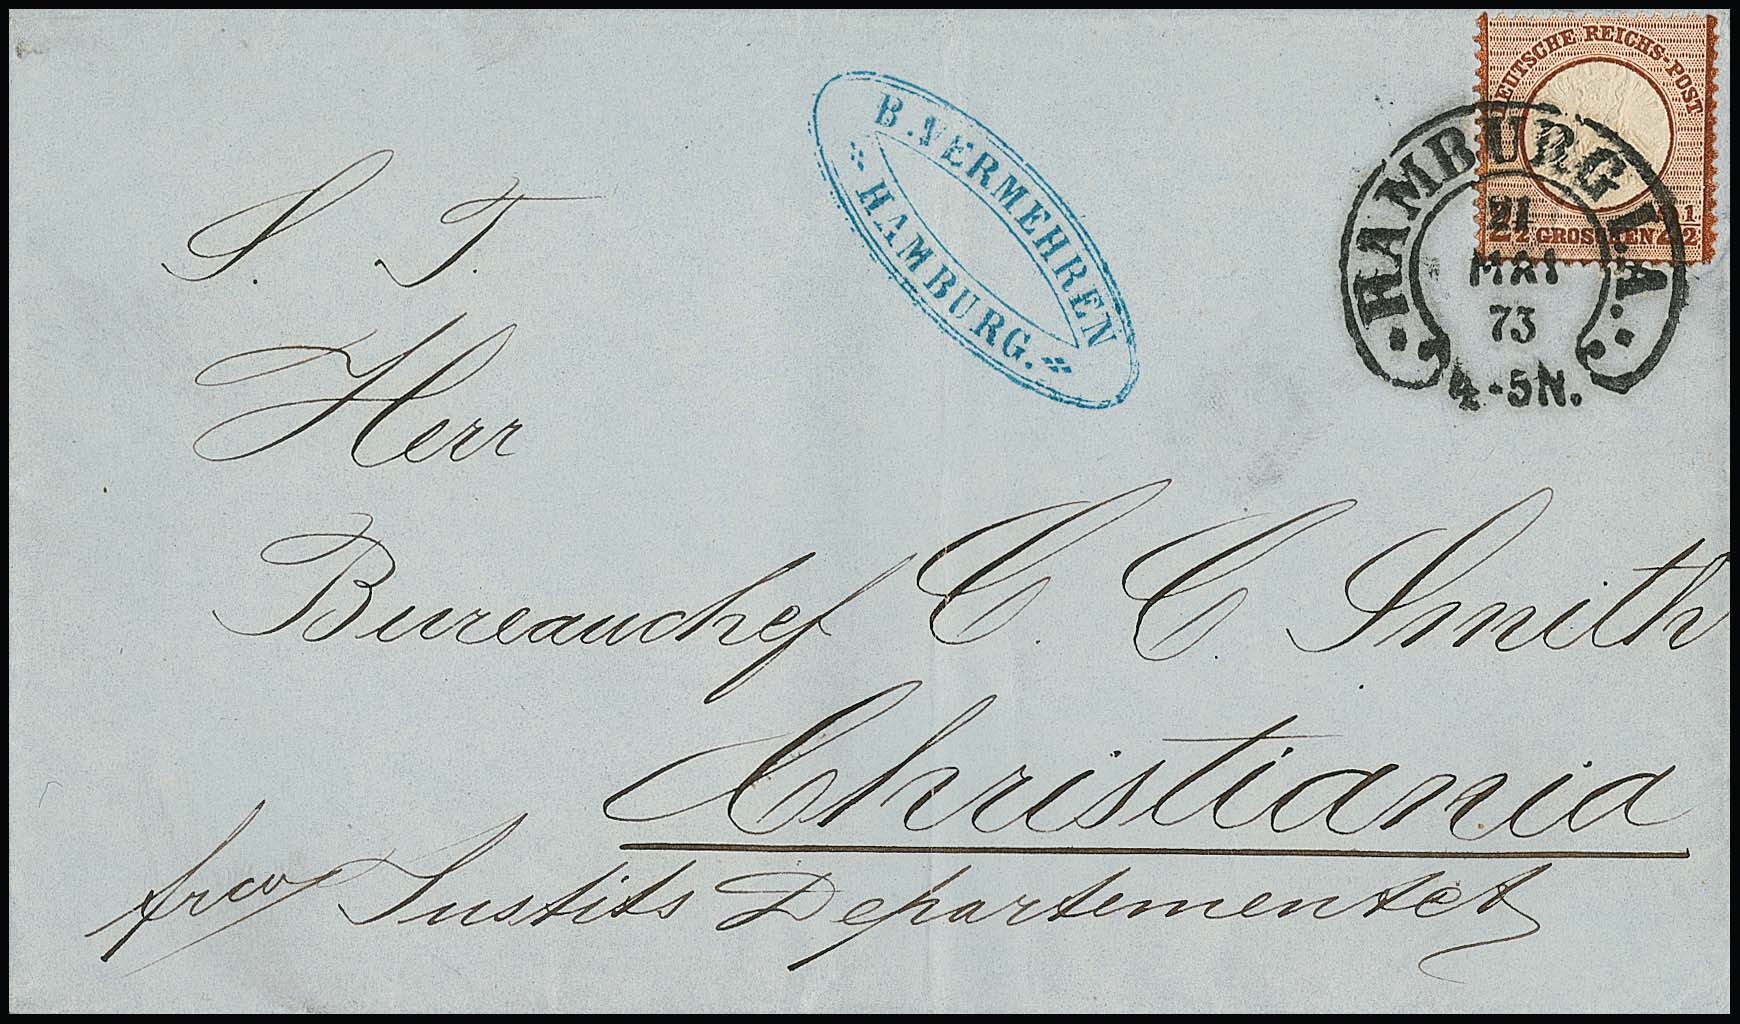 DEUTSCHE REICHS-POST
2 1/2 GROSCHEN 2 1/2
HAMBURG I.A.
21
MAI
73
4-5N.
B. VERMEHREN
HAMBURG.
S. T.
Herr
Bureauchef C. C. Smith
Christiania
frco Justits Departementet